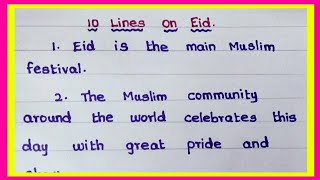 10 Lines on Eid.
1. Eid is the main Muslim
festival.
2. The Muslim community
around the world celebrates this
day with great pride and